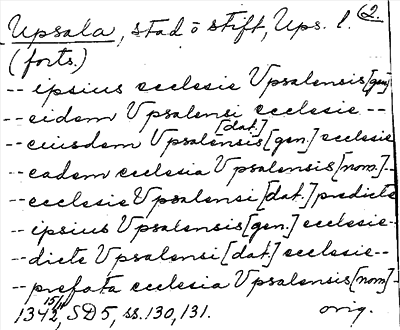 Upsala, stad o stift, Ups. l. (2.
(forts.)
-- ipsius ecclesie Upsalensis [gen.]
-- eidem Vpsalensi ecclesie --
[dat.]
-- eiusdem Vpsalensis [gen.] ecclesie
-- eadem ecclesia Vpsalensis [nom.] --
-- ecclesie Vpsalensi [dat.] predicte
-- ipsius Vpsalensis [gen.] ecclesie --
-- dicte Vpsalensi [dat.] ecclesie --
-- prefata ecclesia Vpsalensis [nom.] --
1342 15/4, SD5, ss. 130, 131. orig.